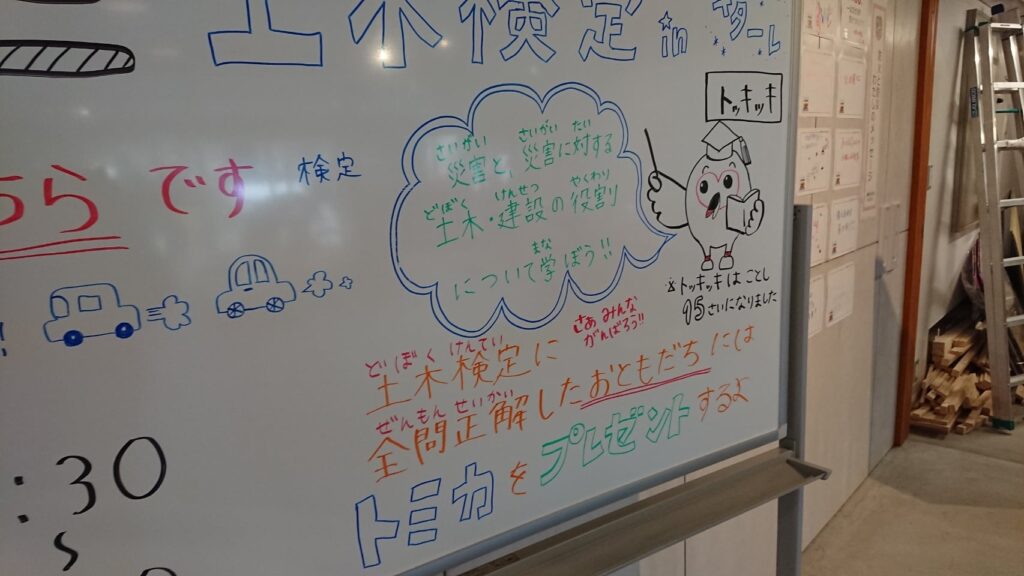 土木検定 in
トッキッキ
さいがい さいがい たい
災害と、災害に対する
どぼく けんせつ やくわり
土木・建設の役割
まな
について学ぼう!!
※トッキッキはことし
15さいになりました
さぁ みんな
がんばろう!!
どぼくけんてい
土木検定に
ぜんもんせいかい
全問正解したおともだちには
トミカをプレゼントするよ
ちらです
検定
:30